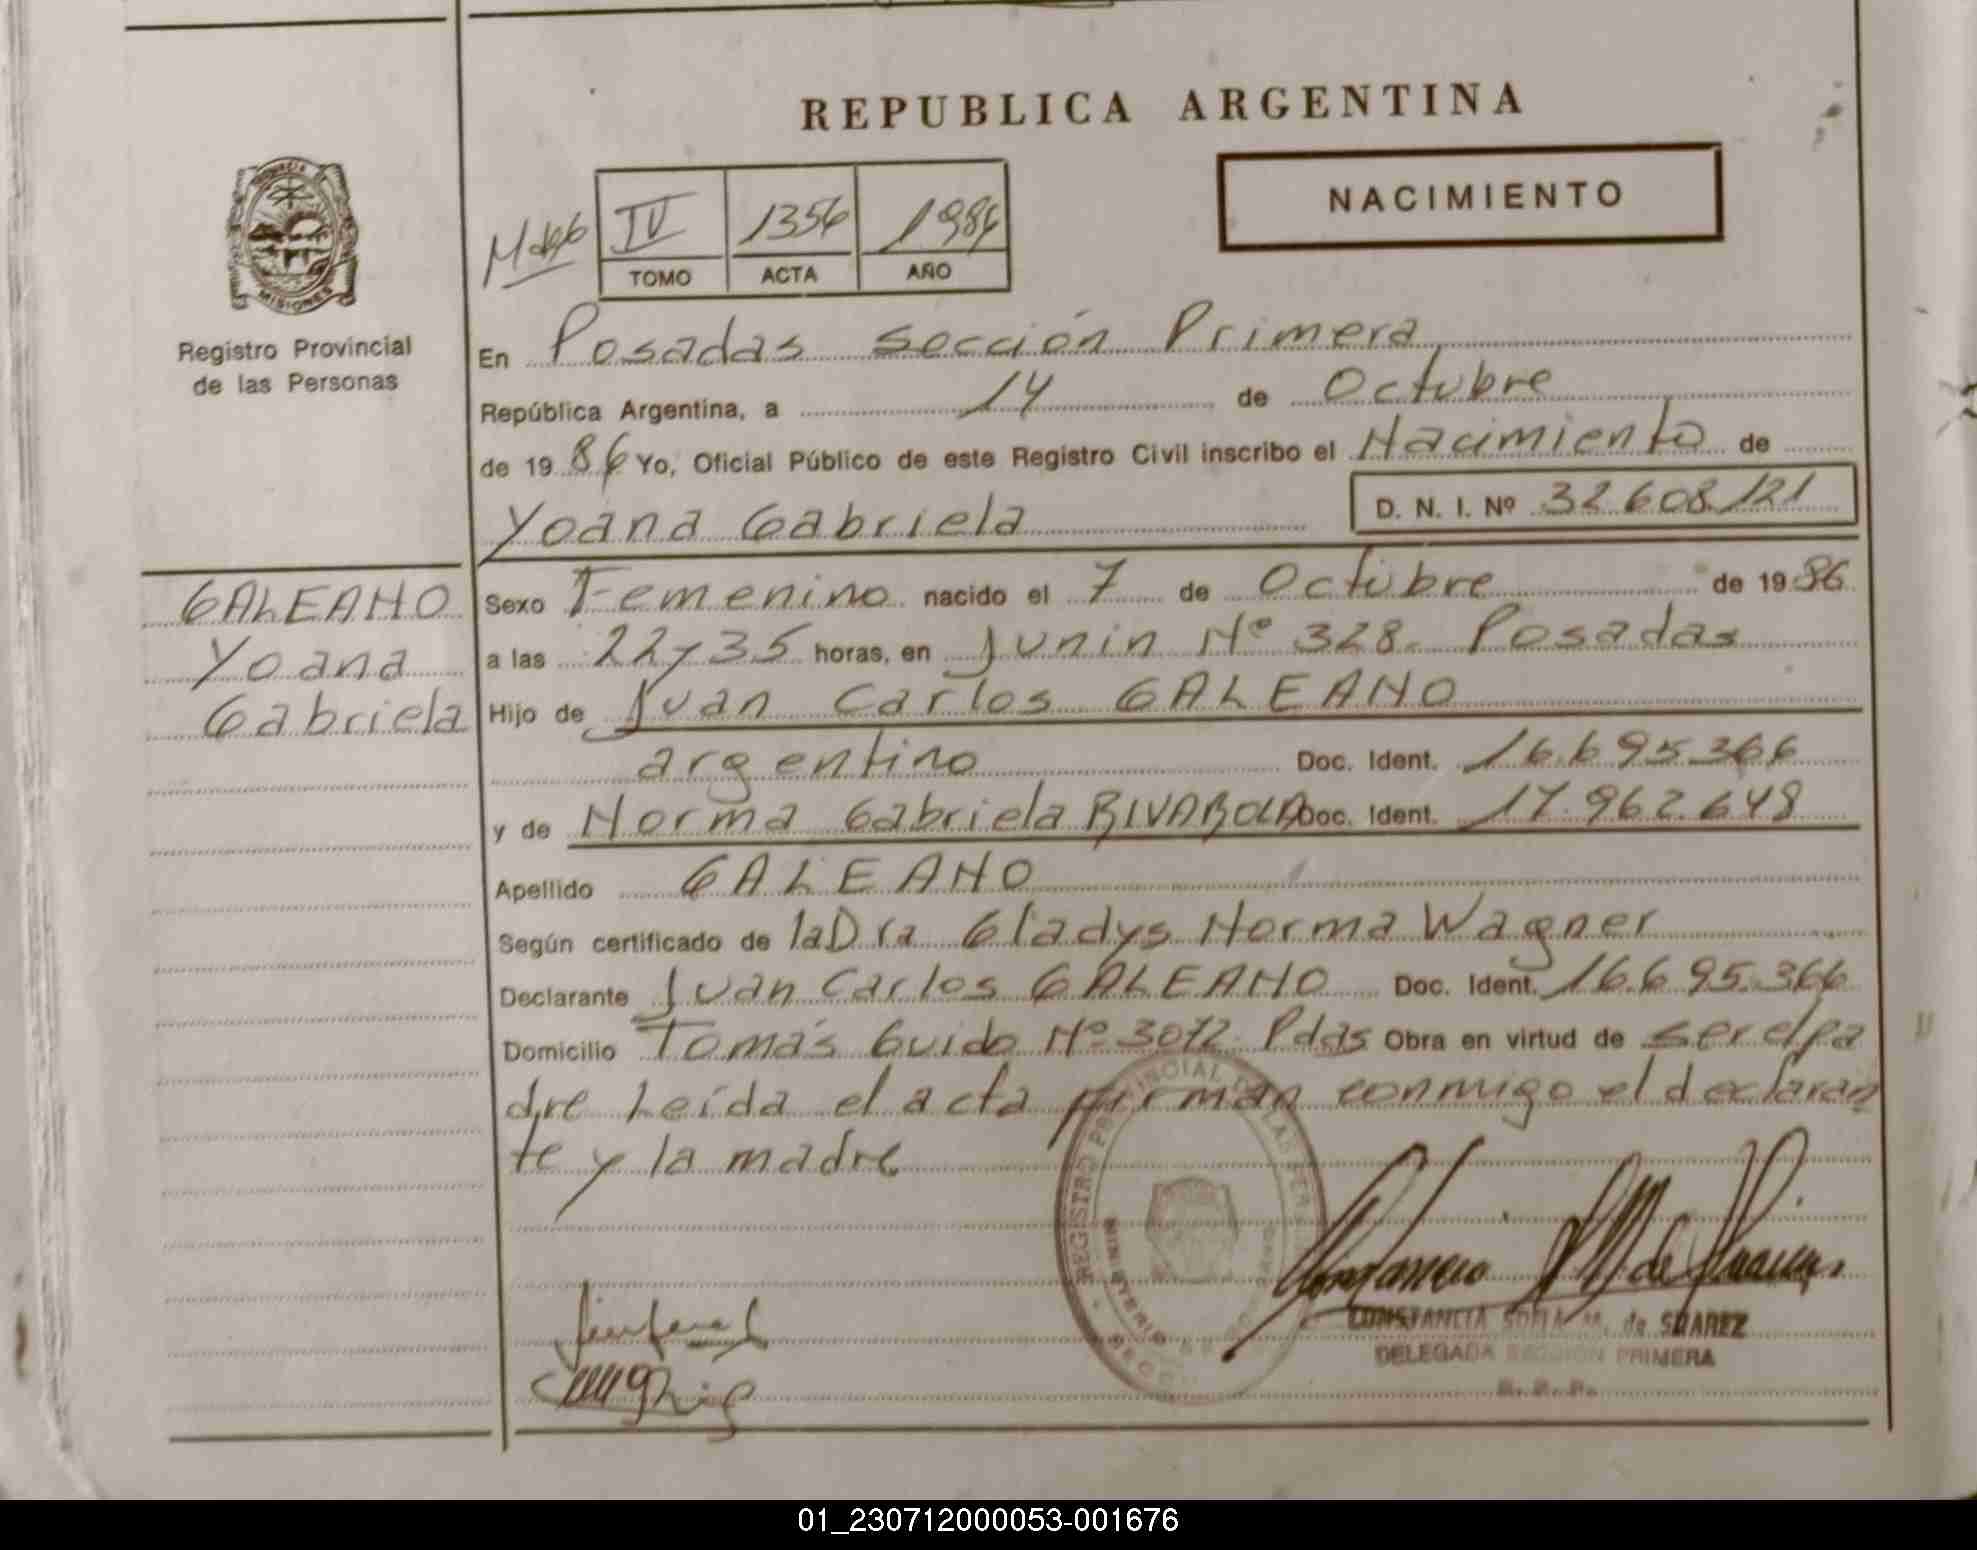 REPUBLICA ARGENTINA
PROVINCIA DE
MISIONES
Registro Provincial
de las Personas
NACIMIENTO
IV 1356 1986
TOMO ACTA AÑO
En Posadas sección Primera
República Argentina, a 14 de Octubre
de 1986 Yo, Oficial Público de este Registro Civil inscribo el Nacimiento de
Yoana Gabriela D. N. I. Nº 32.608.121
GALEANO
Yoana
Gabriela
Sexo Femenino nacido el 7 de Octubre de 1986
a las 22 y 35 horas, en Junin Nº 328. Posadas
Hijo de Juan Carlos GALEANO
argentino Doc. Ident. 16.695.366
y de Norma Gabriela RIVAROLA Doc. Ident. 17.962.648
Apellido GALEANO
Según certificado de la Dra Gladys Norma Wagner
Declarante Juan Carlos GALEANO Doc. Ident. 16.695.366
Domicilio Tomás Guido Nº 3072 Pdas Obra en virtud de ser el pa
dre Leída el acta firman conmigo el declaran
te y la madre
REGISTRO PROVINCIAL DE LAS PER
MINISTERIO
CONSTANCIA SOFIA M. de SUAREZ
DELEGADA SECCION PRIMERA
R. P. P.
01_230712000053-001676